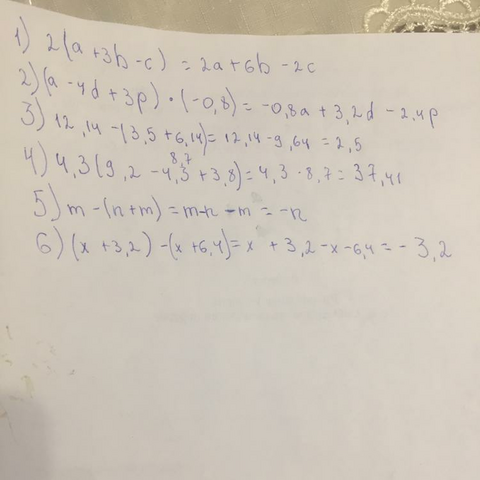 1) 2(a+3b-c) = 2a+6b-2c
2) (a-4d+3p)·(-0,8)= -0,8a+3,2d-2,4p
3) 12,14-(3,5+6,14)= 12,14-9,64=2,5
8,7
4) 4,3(9,2-4,3+3,8)=4,3·8,7=37,41
5) m-(n+m)=m-n-m=-n
6) (x+3,2)-(x+6,4)=x+3,2-x-6,4=-3,2